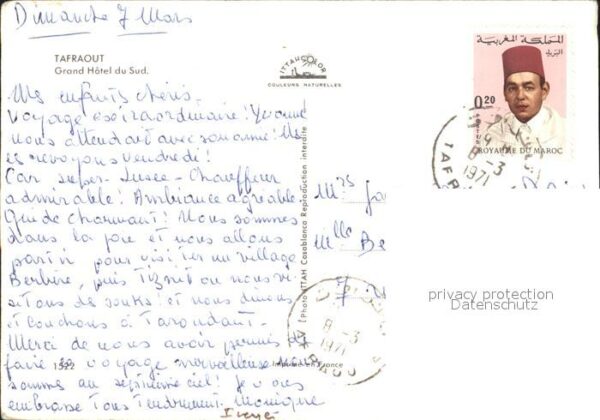 Dimanche 7 Mars
TAFRAOUT
Grand Hôtel du Sud.
ITTAHCOLOR
COULEURS NATURELLES
Mes enfants chéris.
Voyage extraordinaire! Yvonne
nous attendait avec son amie! Nous
les revoyons vendredi!
Car super-luxe - Chauffeur
admirable! Ambiance agréable
Guide charmant! Nous sommes
dans la joie et nous allons
partir pour visiter un village
Berbère, puis Tiznit où nous vi-
sitons des souks! et nous dinons
et couchons à Taroudant.
Merci de nous avoir permis de
faire ce voyage merveilleuse nous
sommes au septième ciel! Je vous
embrasse tous tendrement. Monique
المملكة المغربية
البريد
0,20
POSTES
ROYAUME DU MAROC
8-3
1971
TAFR
Mrs
Mlle Be
Photo ITTAH Casablanca Reproduction interdite
privacy protection
Datenschutz
8-3
1971
Imprimé en France